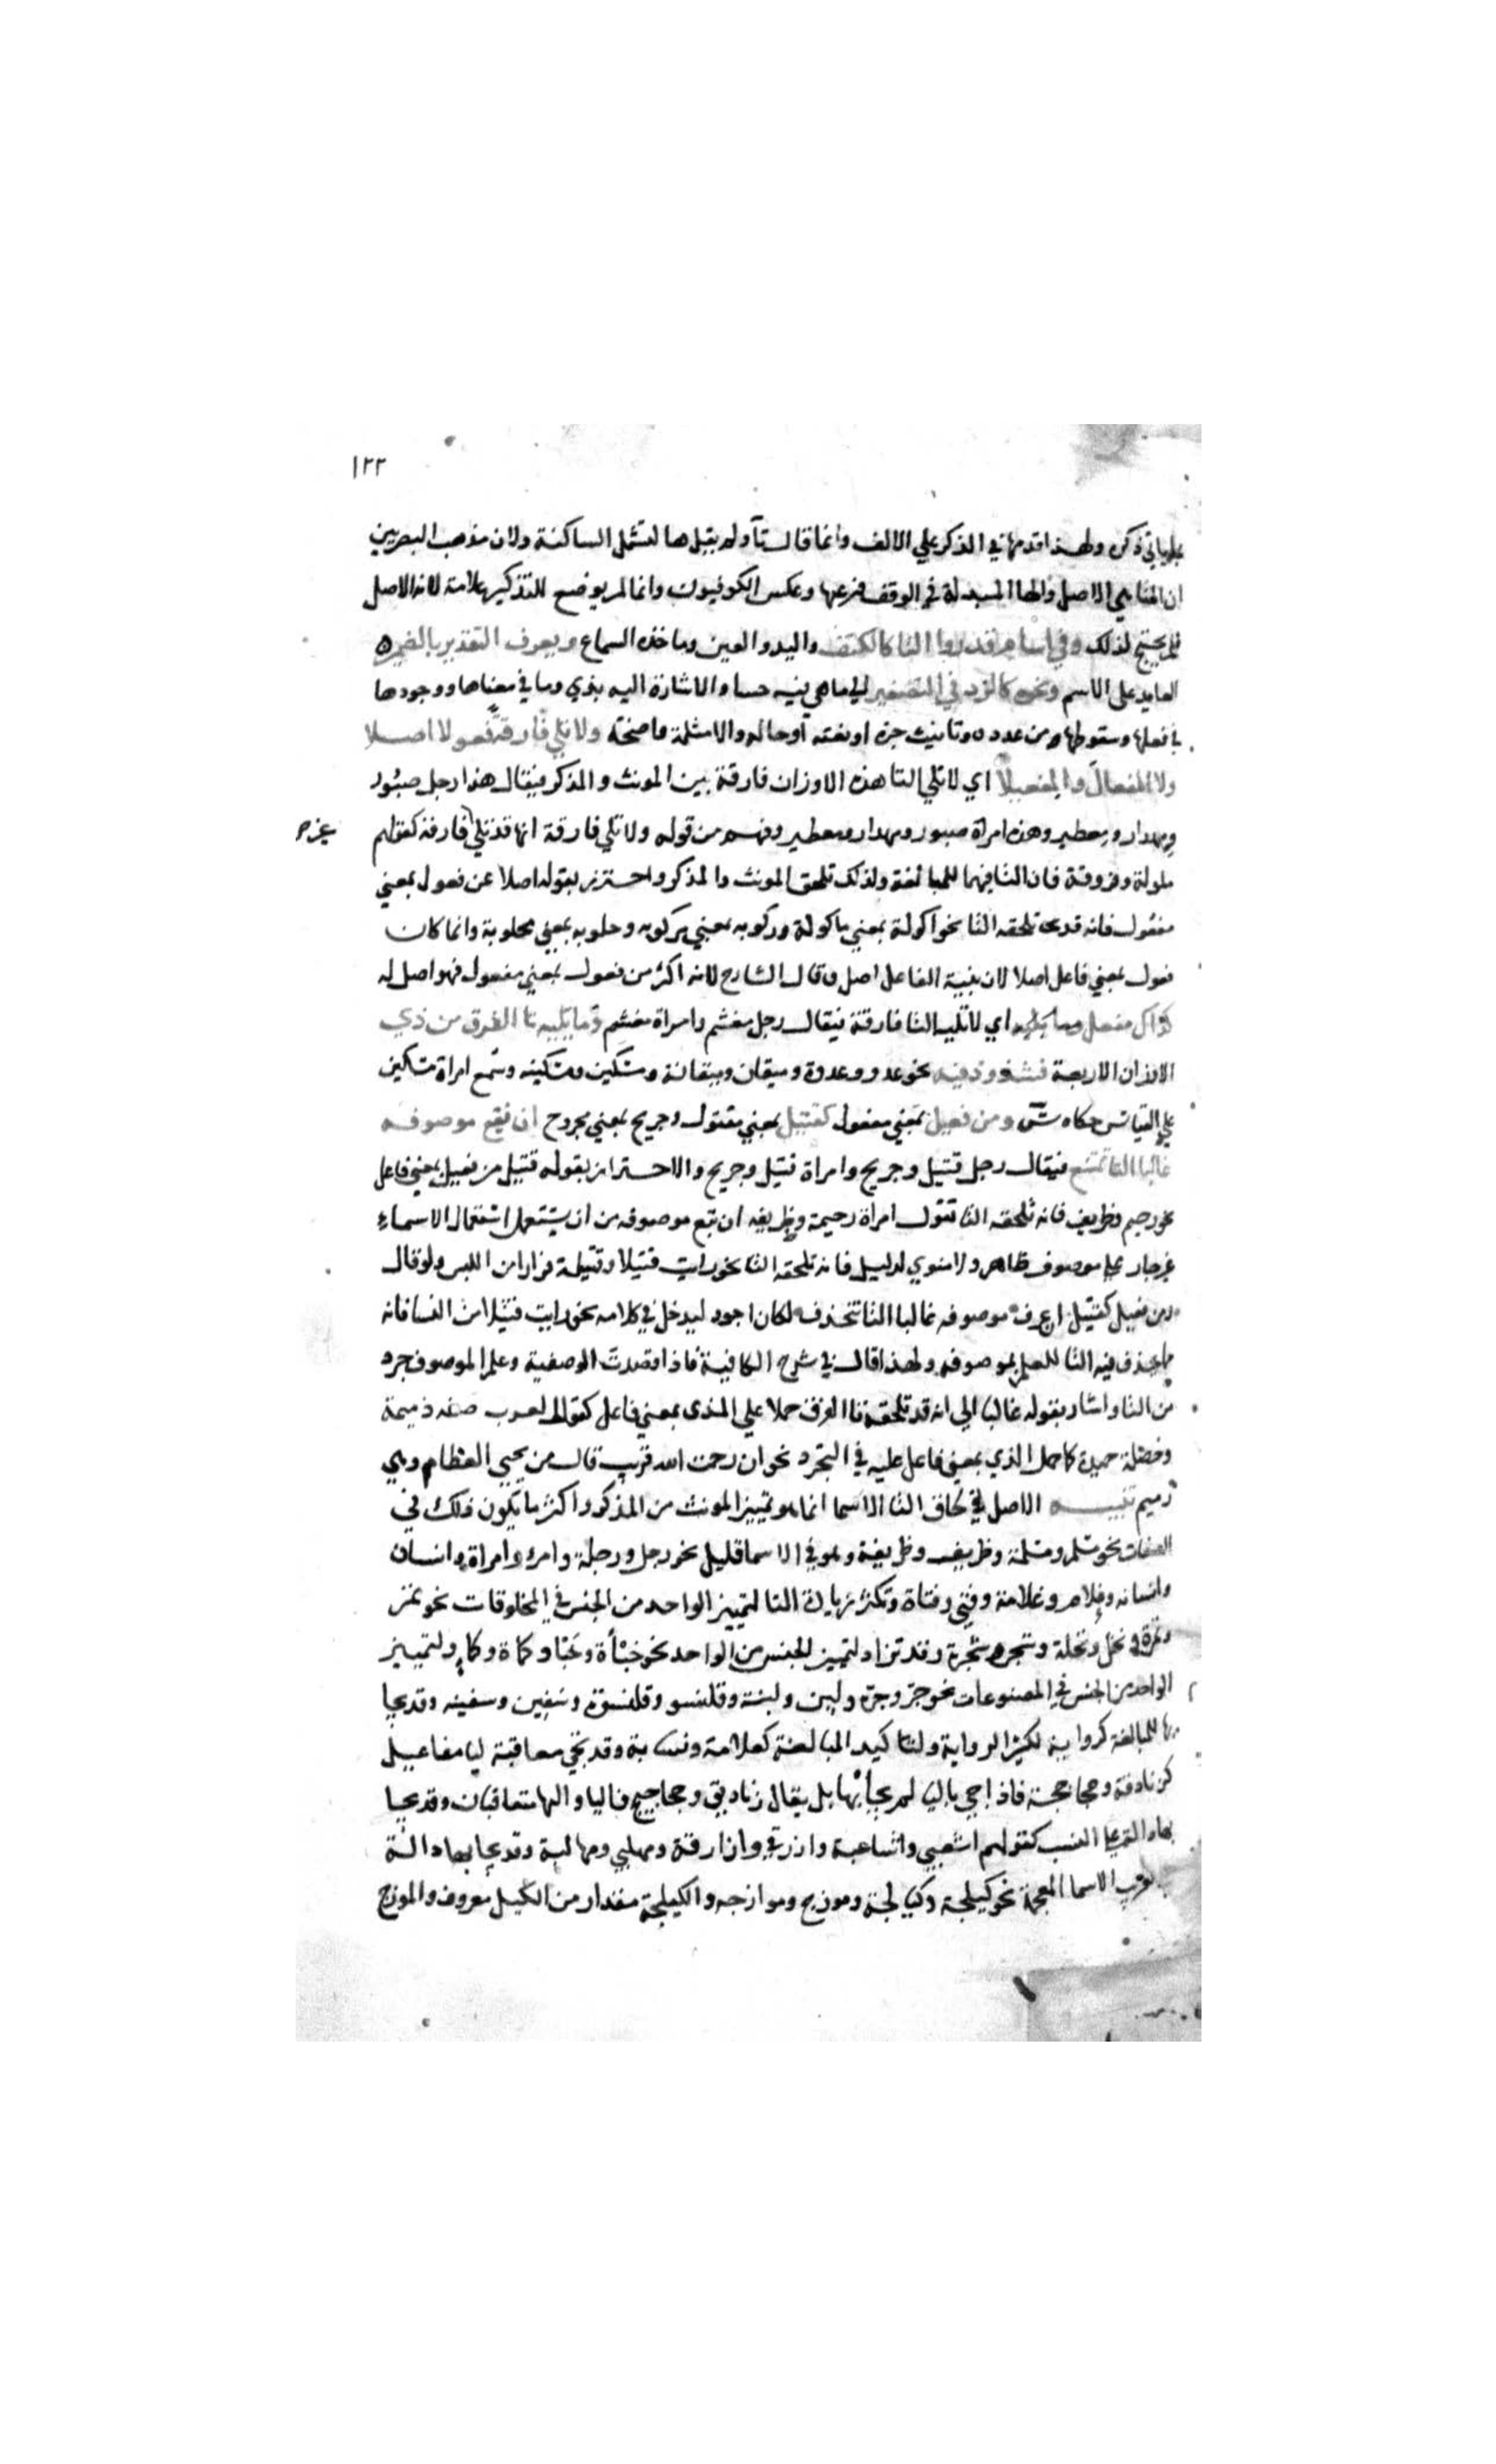 ١٢٢
ياتي ذكره ولهذا قدمها في الذكر علي الالف وانما قال تا ولم يقل ها لتشمل الساكنة ولان مذهب البصريين
ان التا هي الاصل والها المبدلة في الوقف فرعها وعكس الكوفيون وانما لم يوضع للتذكير علامة لانه الاصل
فلم يحتج لذلك وفي اسام قدروا التا كالكتف واليد والعين وماخذه السماع ويعرف التقدير بالضمير ه
العايد على الاسم ونحوه كالرد في التصغير الي ما هي فيه حسا والاشارة اليه بذي وما في معناها ووجودها
بافعلها وسقوطها من عدده وتانيث خبره او نعته او حاله والامثلة واضحة ولا تلي فارقة فعولا اصلا
ولا المفعال والمفعيلا اي لا تلي التا هذه الاوزان فارقة بين المونث والمذكر فيقال هذا رجل صبور
ومهدار ومعطير وهذه امراة صبور ومهدار ومعطير وفهم من قوله ولا تلي فارقة انها قد تلي فارقة كقولهم
غير ح
ملولة وفروقة فان التا فيهما للمبالغة ولذلك تلحق المونث والمذكر واحترز بقوله اصلا عن فعول بمعني
مفعول فانه قد تلحقه التا نحو اكولة بمعني ماكولة وركوبه بمعني مركوبه وحلوبه بمعني محلوبة وانما كان
فعول بمعني فاعل اصلا لان بنية الفاعل اصل وقال الشارح لانه اكثر من فعول بمعني مفعول فهو اصل له
كذاك مفعل وما يليه اي لا تليه التا فارقة فيقال رجل مغشم وامراة مغشم وما تليه تا الفرق من ذي
الاوزان الاربعة فشذوذ فيه نحو عدو وعدوة وميقان وميقانة ومسكين ومسكينه وسمع امراة مسكين
علي القياس حكاه س ومن فعيل بمعني مفعول كقتيل بمعني مقتول وجريح بمعني مجروح ان تبع موصوفه
غالبا التا تمتنع فيقال رجل قتيل وجريح وامراة قتيل وجريح والاحتراز بقوله قتيل من فعيل بمعني فاعل
نحو رحيم وظريف فانه تلحقه التا تقول امراة رحيمة وظريفه ان تبع موصوفه من ان يستعمل استعمال الاسماء
غير جار علي موصوف ظاهر ولا منوي لدليل فانه تلحقه التا نحو رايت قتيلا وقتيلة فرارا من اللبس ولو قال
ومن فعيل كقتيل ان عرف موصوفه غالبا التا تنحذف لكان اجود ليدخل في كلامه نحو رايت قتيلا من النسا فانه
يحذف فيه التا للعلم بموصوفه ولهذا قال في شرح الكافية فاذا قصدت الوصفية وعلم الموصوف جرد
من التا واشار بقوله غالبا الي انه قد تلحقه تا الفرق حملا علي الذي بمعني فاعل كقول العرب صفه ذميمة
وخصلة حميدة كما حمل الذي بمعني فاعل عليه في التجرد نحو ان رحمت الله قريب قال من يحيي العظام وهي
رميم تنبيه الاصل في لحاق التا الاسما انما هو تمييز المونث من المذكر واكثر ما يكون ذلك في
الصفات نحو مسلم ومسلمة وظريف وظريفة وهو في الاسما قليل نحو رجل ورجلة وامرء وامراة وانسان
وانسانه وغلام وغلامة وفتي وفتاة وتكثر زيادة التا لتمييز الواحد من الجنس في المخلوقات نحو تمر
وتمرة ونخل ونخلة وشجر وشجرة وقد تزاد لتمييز الجنس من الواحد نحو خباة وخبا وكماة وكما ولتمييز
الواحد من الجنس في المصنوعات نحو جر وجرة ولبن ولبنة وقلنسو وقلنسوة وسفين وسفينه وقد يجا
بها للمبالغة كراوية لكثير الرواية ولتاكيد المبالغة كعلامة ونسابة وقد تجي معاقبة ليا مفاعيل
كزنادقة وجحاجحة فاذا جي باليا لم يجا بها بل يقال زناديق وجحاجيح فاليا والها متعاقبان وقد يجا
بها دالة علي النسب كقولهم اشعثي واشاعثة وازرقي وازارقة ومهلبي ومهالبة وقد يجا بها دالة
الاسما المعجمة نحو كيلجة وكيالجة وموزج وموازجه والكيلجة مقدار من الكيل معروف والموزج